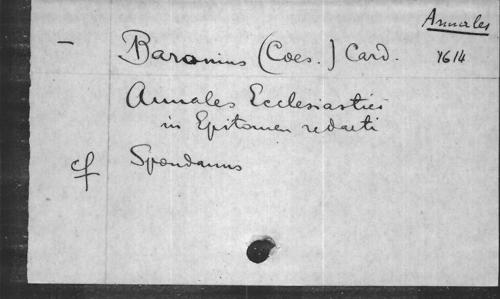 Annales
— Baronius (Caes.) Card. 1614
Annales Ecclesiastici
in Epitomen redacti
cf Spondanus